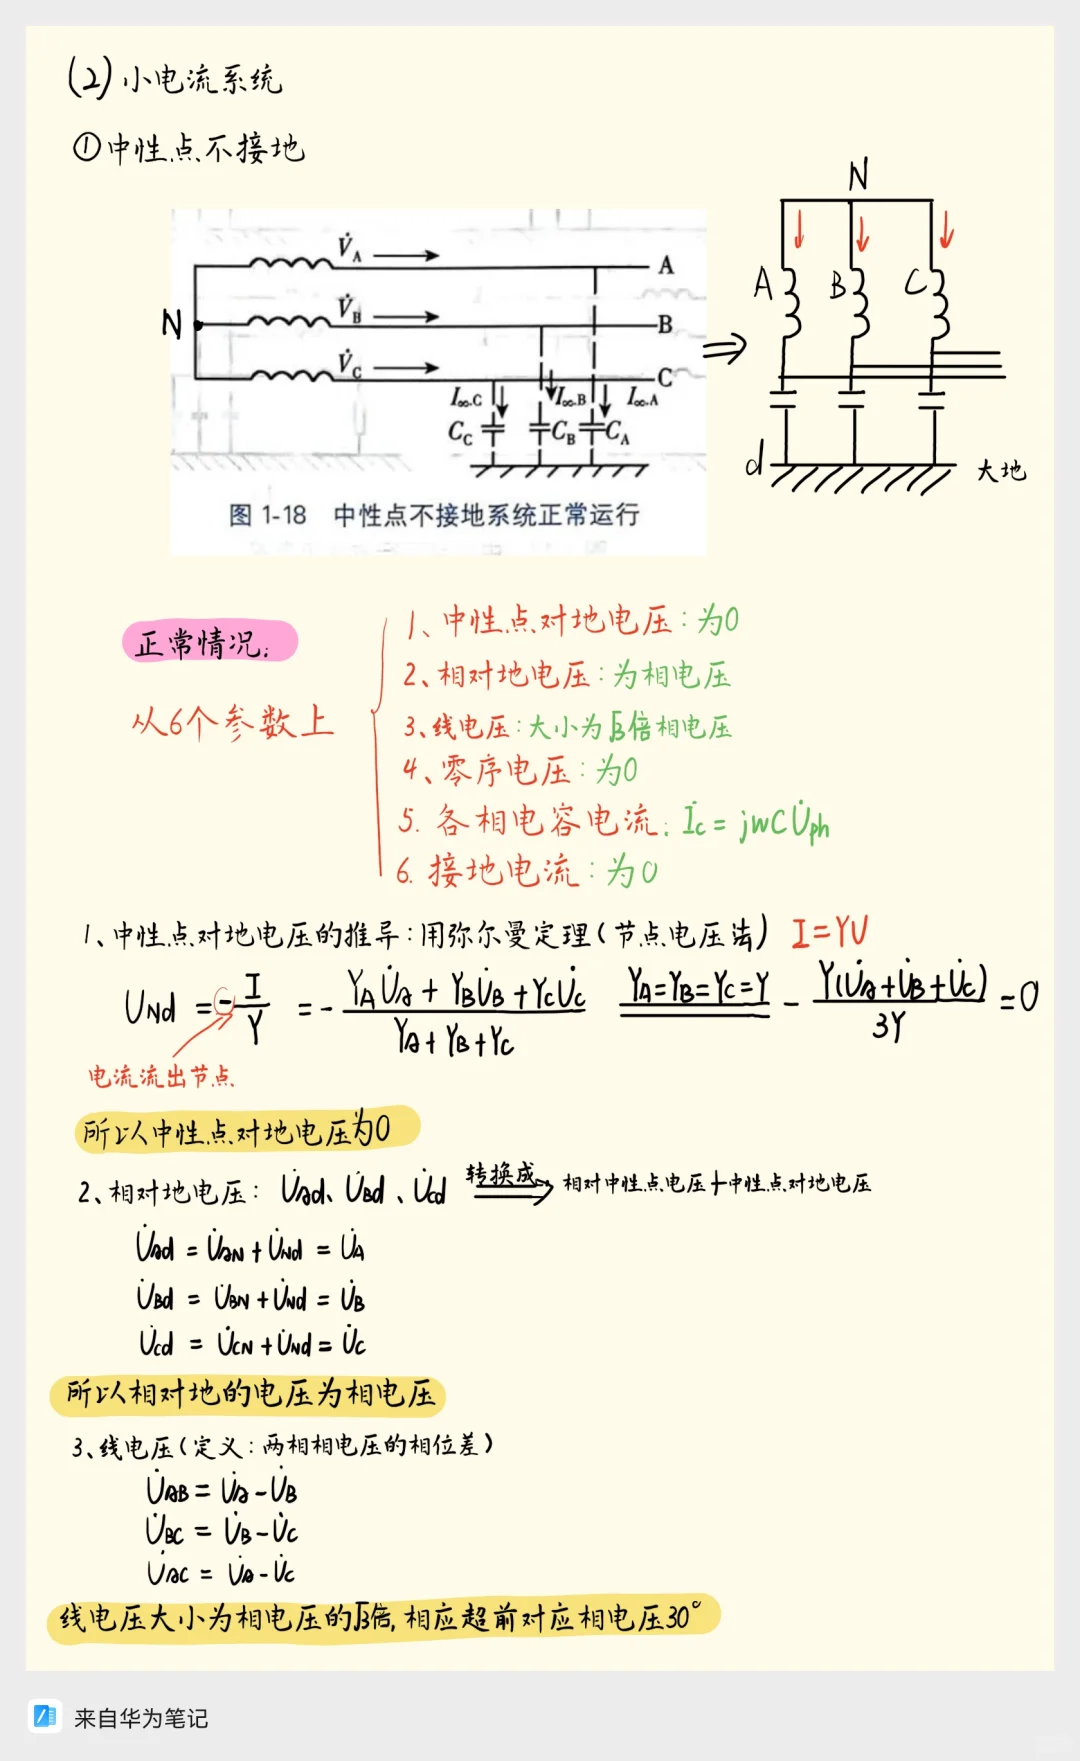 (2) 小电流系统
①中性点不接地
N
V̇A
A
N
V̇B
B
V̇C
C
I∞.C I∞.B I∞.A
CC CB CA
图 1-18 中性点不接地系统正常运行
A B C
d 大地
正常情况:
从6个参数上
1、中性点对地电压:为0
2、相对地电压:为相电压
3、线电压:大小为√3倍相电压
4、零序电压:为0
5. 各相电容电流: İc = jwCU̇ph
6. 接地电流:为0
1、中性点对地电压的推导:用弥尔曼定理(节点电压法) I=YU
UNd = -I/Y = - (YAU̇A + YBU̇B + YCU̇C)/(YA+YB+YC) YA=YB=YC=Y - Y(U̇A+U̇B+U̇C)/3Y =0
电流流出节点
所以中性点对地电压为0
2、相对地电压: U̇Ad、U̇Bd、U̇Cd 转换成 相对中性点电压+中性点对地电压
U̇Ad = U̇AN + U̇Nd = U̇A
U̇Bd = U̇BN + U̇Nd = U̇B
U̇Cd = U̇CN + U̇Nd = U̇C
所以相对地的电压为相电压
3、线电压(定义:两相相电压的相位差)
U̇AB = U̇A - U̇B
U̇BC = U̇B - U̇C
U̇AC = U̇A - U̇C
线电压大小为相电压的√3倍,相应超前对应相电压30°
来自华为笔记